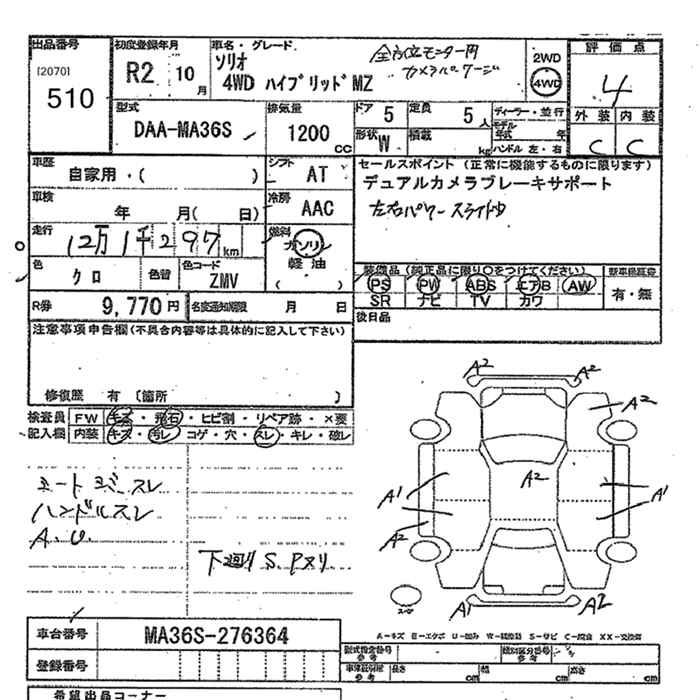 出品番号
[2070]
510
初度登録年月
R2 10 月
車名・グレード
ソリオ
4WD ハイブリッドMZ
全方位モニター用
カメラパッケージ
2WD
4WD
評価点
4
外装 内装
C C
型式
DAA-MA36S
排気量
1200 cc
ドア 5
定員 5 人
形状 W
積載 kg
ディーラー・並行
モデル年式 年
ハンドル 左・右
車歴
自家用・( )
シフト AT
セールスポイント (正常に機能するものに限ります)
デュアルカメラブレーキサポート
左右パワースライドD
車検
年 月( 日)
冷房 AAC
走行
12万1千297 km
燃料
ガソリン
軽油
( )
色
クロ
色替
色コード
ZMV
装備品 (純正品に限り○をつけてください)
PS PW ABS エアB AW
SR ナビ TV カワ
新車保証書
有・無
R券
9,770円
名変通知期限 月 日
後日品
注意事項申告欄(不具合内容等は具体的に記入して下さい)
修復歴 有 〔箇所 〕
検査員
記入欄
FW キズ・飛石・ヒビ割・リペア跡・×要
内装 キズ・汚レ・コゲ・穴・スレ・キレ・破レ
ハンドルスレ
下廻り S. Pヌリ
A2 A2
A2
A2
A1 A1
A2
A1 A2
A-キズ E-エクボ U-凹み W-補修跡 S-サビ C-腐食 XX-交換済
車台番号
MA36S-276364
登録番号
型式指定番号
参考
類別区分番号
参考
車体証明所
参考
長さ cm 幅 cm 高さ cm
希望出品コーナー